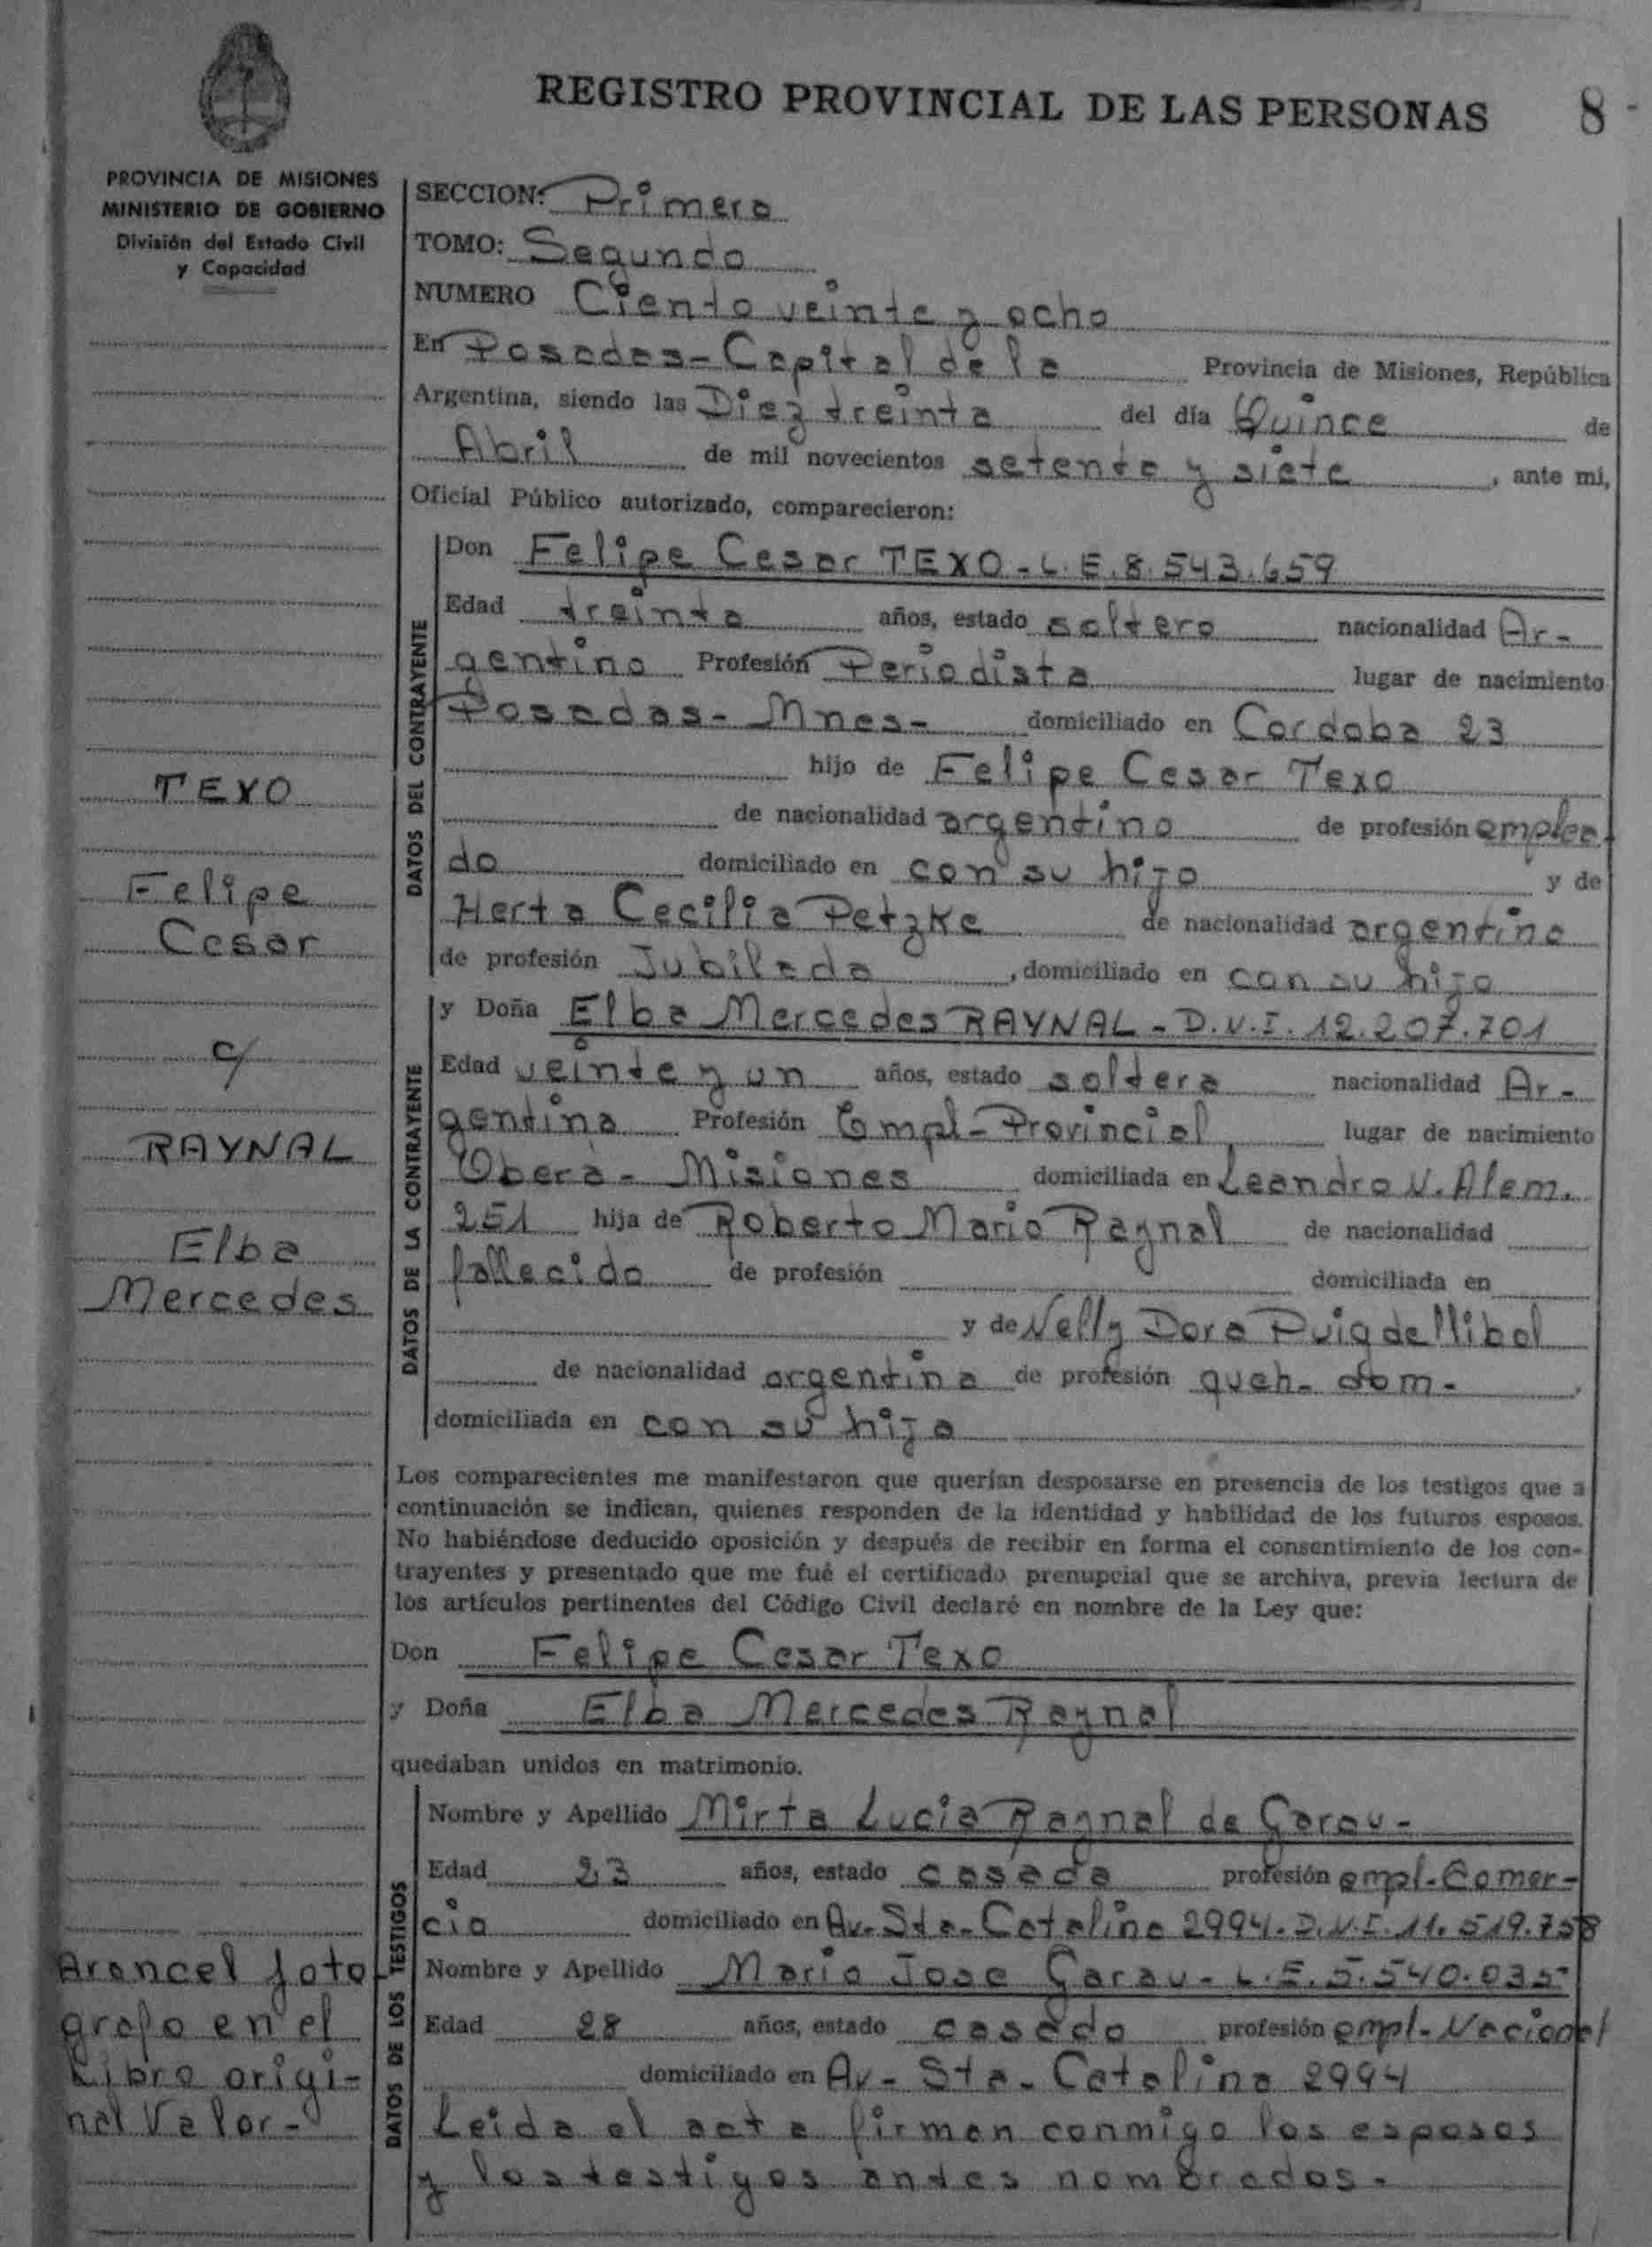 REGISTRO PROVINCIAL DE LAS PERSONAS 8
PROVINCIA DE MISIONES
MINISTERIO DE GOBIERNO
División del Estado Civil
y Capacidad
TEXO
Felipe
Cesar
c/
RAYNAL
Elba
Mercedes
Arancel foto
grafo en el
Libro origi-
nal Valor-
SECCION: Primera
TOMO: Segundo
NUMERO Ciento veinte y ocho
En Posadas-Capital de la Provincia de Misiones, República
Argentina, siendo las Diez treinta del día Quince de
Abril de mil novecientos setenta y siete, ante mi,
Oficial Público autorizado, comparecieron:
DATOS DEL CONTRAYENTE
Don Felipe Cesar TEXO-L.E.8.543.659
Edad treinta años, estado soltero nacionalidad Ar-
gentina Profesión Periodista lugar de nacimiento
Posadas-Mnes- domiciliado en Cordoba 23
hijo de Felipe Cesar Texo
de nacionalidad argentino de profesión emplea
do domiciliado en con su hijo y de
Herta Cecilia Petzke de nacionalidad argentina
de profesión Jubilada, domiciliado en con su hijo
DATOS DE LA CONTRAYENTE
y Doña Elba Mercedes RAYNAL-D.N.I.12.207.701
Edad veinte y un años, estado soltera nacionalidad Ar-
gentina Profesión Empl-Provincial lugar de nacimiento
Oberá-Misiones domiciliada en Leandro N. Alem.
251 hija de Roberto Mario Raynal de nacionalidad
fallecido de profesión domiciliada en
y de Nelly Dora Puigdellibol
de nacionalidad argentina de profesión queh-dom-
domiciliada en con su hija
Los comparecientes me manifestaron que querían desposarse en presencia de los testigos que a
continuación se indican, quienes responden de la identidad y habilidad de los futuros esposos.
No habiéndose deducido oposición y después de recibir en forma el consentimiento de los con-
trayentes y presentado que me fué el certificado prenupcial que se archiva, previa lectura de
los artículos pertinentes del Código Civil declaré en nombre de la Ley que:
Don Felipe Cesar Texo
y Doña Elba Mercedes Raynal
quedaban unidos en matrimonio.
DATOS DE LOS TESTIGOS
Nombre y Apellido Mirta Lucia Raynal de Garau-
Edad 23 años, estado casada profesión empl-Comer-
cio domiciliado en Av-Sta-Catalina 2994-D.N.I.11.519.758
Nombre y Apellido Mario Jose Garau-L.E.5.540.035
Edad 28 años, estado casado profesión empl-Nacional
domiciliado en Av-Sta-Catalina 2994
Leida el acta firman conmigo los esposos
y los testigos antes nombrados.